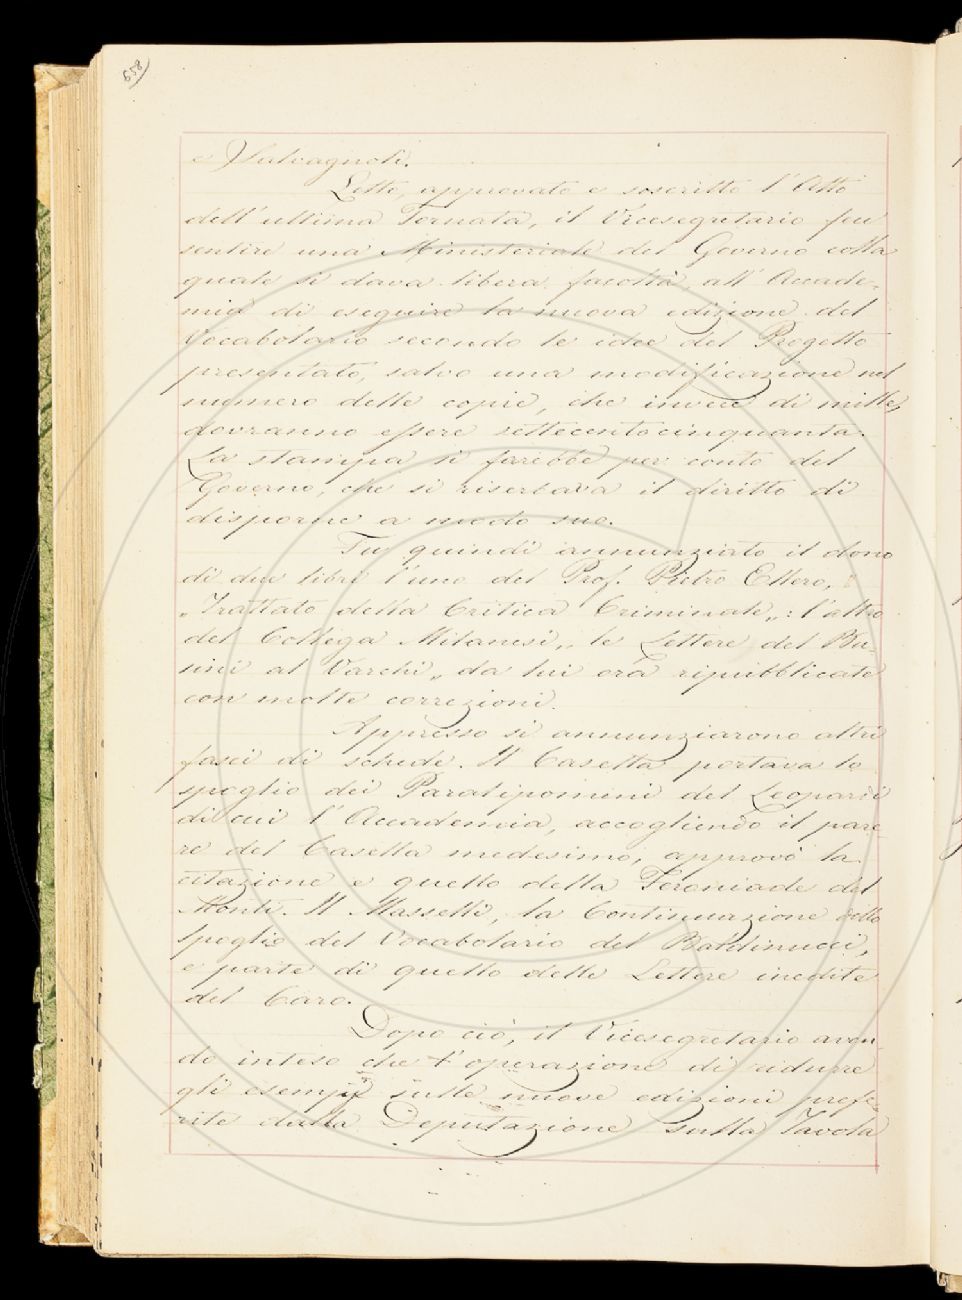 658
e Salvagnoli.
Letto, approvato e soscritto l'Atto
dell'ultima Tornata, il Vicesegretario feu
sentire una Ministeriale del Governo colla
quale si dava libera facoltà all'Accade-
mia di eseguire la nuova edizione del
Vocabolario secondo le idee del Progetto
presentato, salvo una modificazione nel
numero delle copie, che invece di mille,
dovranno essere settecentocinquanta.
La stampa si farebbe per conto del
Governo, che si riserbava il diritto di
disporne a modo suo.
Fu quindi annunziato il dono
di due libri l'uno del Prof. Pietro Ellero,
„Trattato della Critica Criminale„: l'altro
del Collega Milanesi„ le Lettere del Bu-
sini al Varchi„ da lui ora ripubblicate
con molte correzioni.
Appresso si annunziarono altri
fasci di schede. Il Casella portava lo
spoglio dei Paralipomeni del Leopardi
di cui l'Accademia, accogliendo il pare-
re del Casella medesimo, approvò la
citazione e quello della Feroniade del
Monti. Il Masselli, la Continuazione dello
spoglio del Vocabolario del Baldinucci,
e parte di quello delle Lettere inedite
del Caro.
Dopo ciò, il Vicesegretario aven-
do inteso che l'operazione di ridurre
gli esempj sulle nuove edizioni prefe-
rite dalla Deputazione sulla Tavola